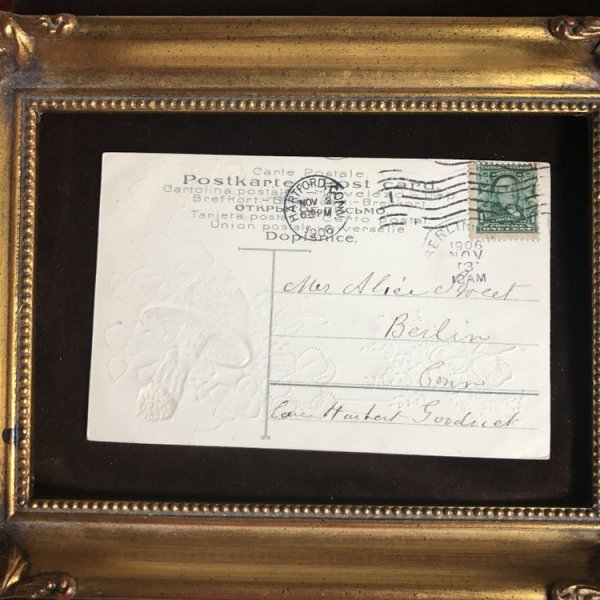 Carte Postale
Postkarte Post card
Cartolina postale
Brefkort
ОТКРЫ СЬМО
Tarjeta postal
Union postale universelle
Dopisnice.
HARTFORD CONN.
NOV 2
6 PM
1906
BERLIN
1906
NOV
3
10AM
ONE CENT
Mrs Alice Sweet
Berlin
Conn
Care Herbert